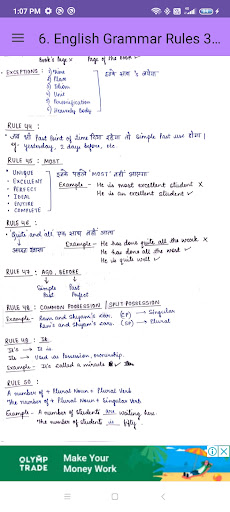 1:07 PM
6. English Grammar Rules 3...
Book's Page × Page of the Book ✓
• EXCEPTIONS: 1) Time
2) Place
3) Idiom
4) Unit
5) Personification
6) Heavenly Body
इनके साथ 's लगेगा
RULE 44:
• जब भी Past Point of time दिया रहेगा तो Simple Past use होगा।
eg:- Yesterday, 2 days before, etc.
RULE 45: MOST
• UNIQUE
• EXCELLENT
• PERFECT
• IDEAL
• ENTIRE
• COMPLETE
इनके पहले 'MOST' नहीं आएगा
Example - He is most excellent student ×
He is an excellent student ✓
RULE 46:
'Quite' and 'all' एक साथ नहीं आता
Example - He has done quite all the work ×
He has done all the work ✓
He is quite well ✓
RULE 47: AGO, BEFORE
Simple Past
Past Perfect
RULE 48: COMMON POSSESSION / SPLIT POSSESSION
Example - Ram and Shyam's car. (CP) → Singular
Ram's and Shyam's cars. (SP) → Plural
RULE 49: It
It's → It is
Its → Used as Possession, ownership.
Example - It's called a miracle
RULE 50:
A number of + Plural Noun + Plural Verb
The number of + Plural Noun + Singular Verb
Example - A number of students are waiting here.
The number of students is fifty.
OLYMP TRADE
Make Your
Money Work